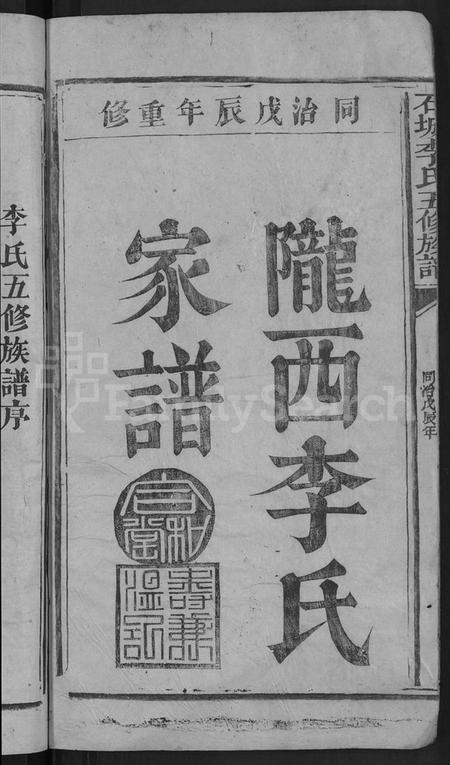 石城李氏五修族譜
同治戊辰年
同治戊辰年重修
隴西李氏
家譜
李氏五修族譜序
FamilySearch